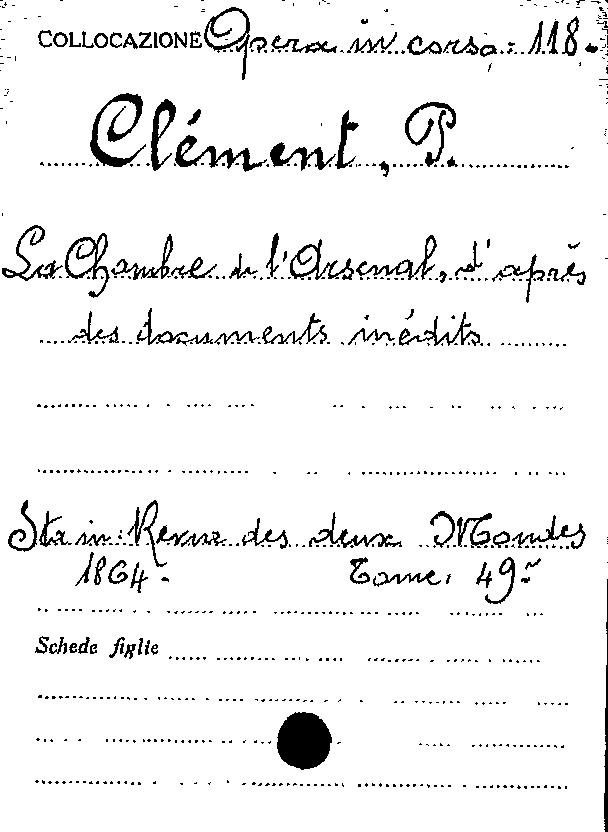 COLLOCAZIONE Opera in corso: 118.
Clément, P.
La Chambre de l'Arsenal, d'après
des documents inédits
Sta in: Revue des deux Mondes
1864. Tome. 49º
Schede figlie